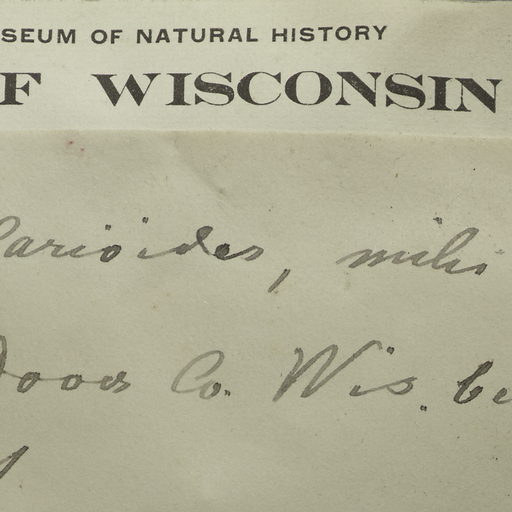 SEUM OF NATURAL HISTORY
F WISCONSIN
Carioides,
Door Co. Wis. be